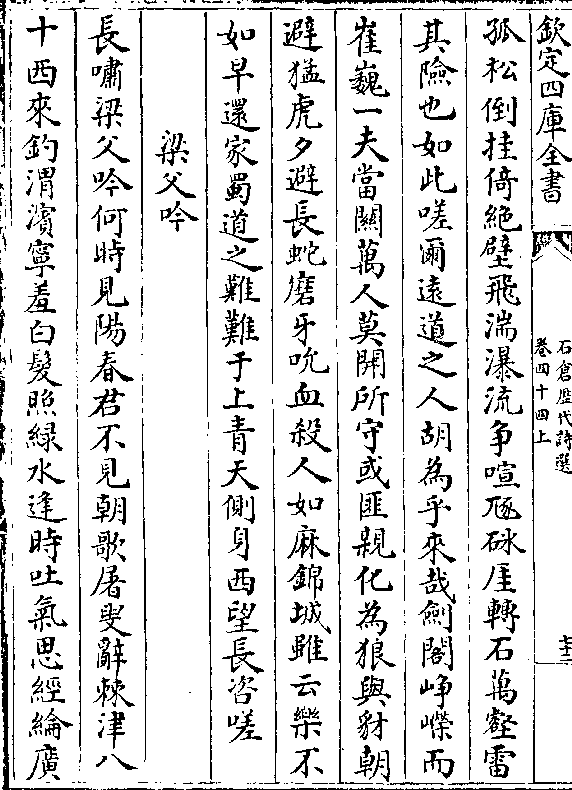 欽定四庫全書
石倉歴代詩選
卷四十四上
孤松倒挂倚絶壁飛湍瀑流争喧豗砯厓轉石萬壑雷
其險也如此嗟爾遠道之人胡為乎來哉劍閣崢嶸而
崔巍一夫當關萬人莫開所守或匪親化為狼與豺朝
避猛虎夕避長蛇磨牙吮血殺人如麻錦城雖云樂不
如早還家蜀道之難難于上青天側身西望長咨嗟
梁父吟
長嘯梁父吟何時見陽春君不見朝歌屠叟辭棘津八
十西來釣渭濱寧羞白髮照緑水逢時吐氣思經綸廣